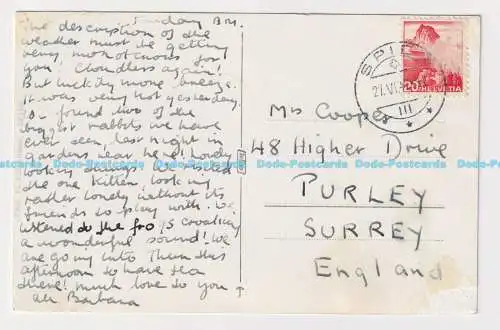 Sunday P.M.
The description of the
weather must be getting
very monotonous for
you, Cloudless again!
But luckily more breeze.
It was very hot yesterday.
We found two of the
biggest rabbits we have
ever seen, last night in
gardens near here. Lovely
looking things. We visited
the one kitten, looking
rather lonely without its
friends to play with. We
listened to the frogs croaking
a wonderful sound! We
are going into Thun this
afternoon to have tea
there! Much love to you
all Barbara
SPIEZ
21.VI
III
20 HELVETIA
Mrs Cooper
48 Higher Drive
PURLEY
SURREY
England
Dodo-Postcards Dodo-Postcards Dodo-Postcards Dodo-Postcards